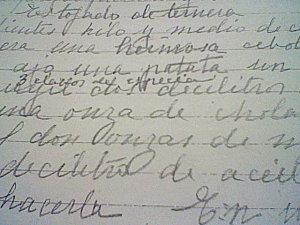 estofado de ternera
ientes kilo y medio de c
era una hermosa cebol
ajo una patata un
3 clavos de especia
dos decilitros
una onza de chocola
y dos onzas de m
decilitro de aceit
hacerla En u